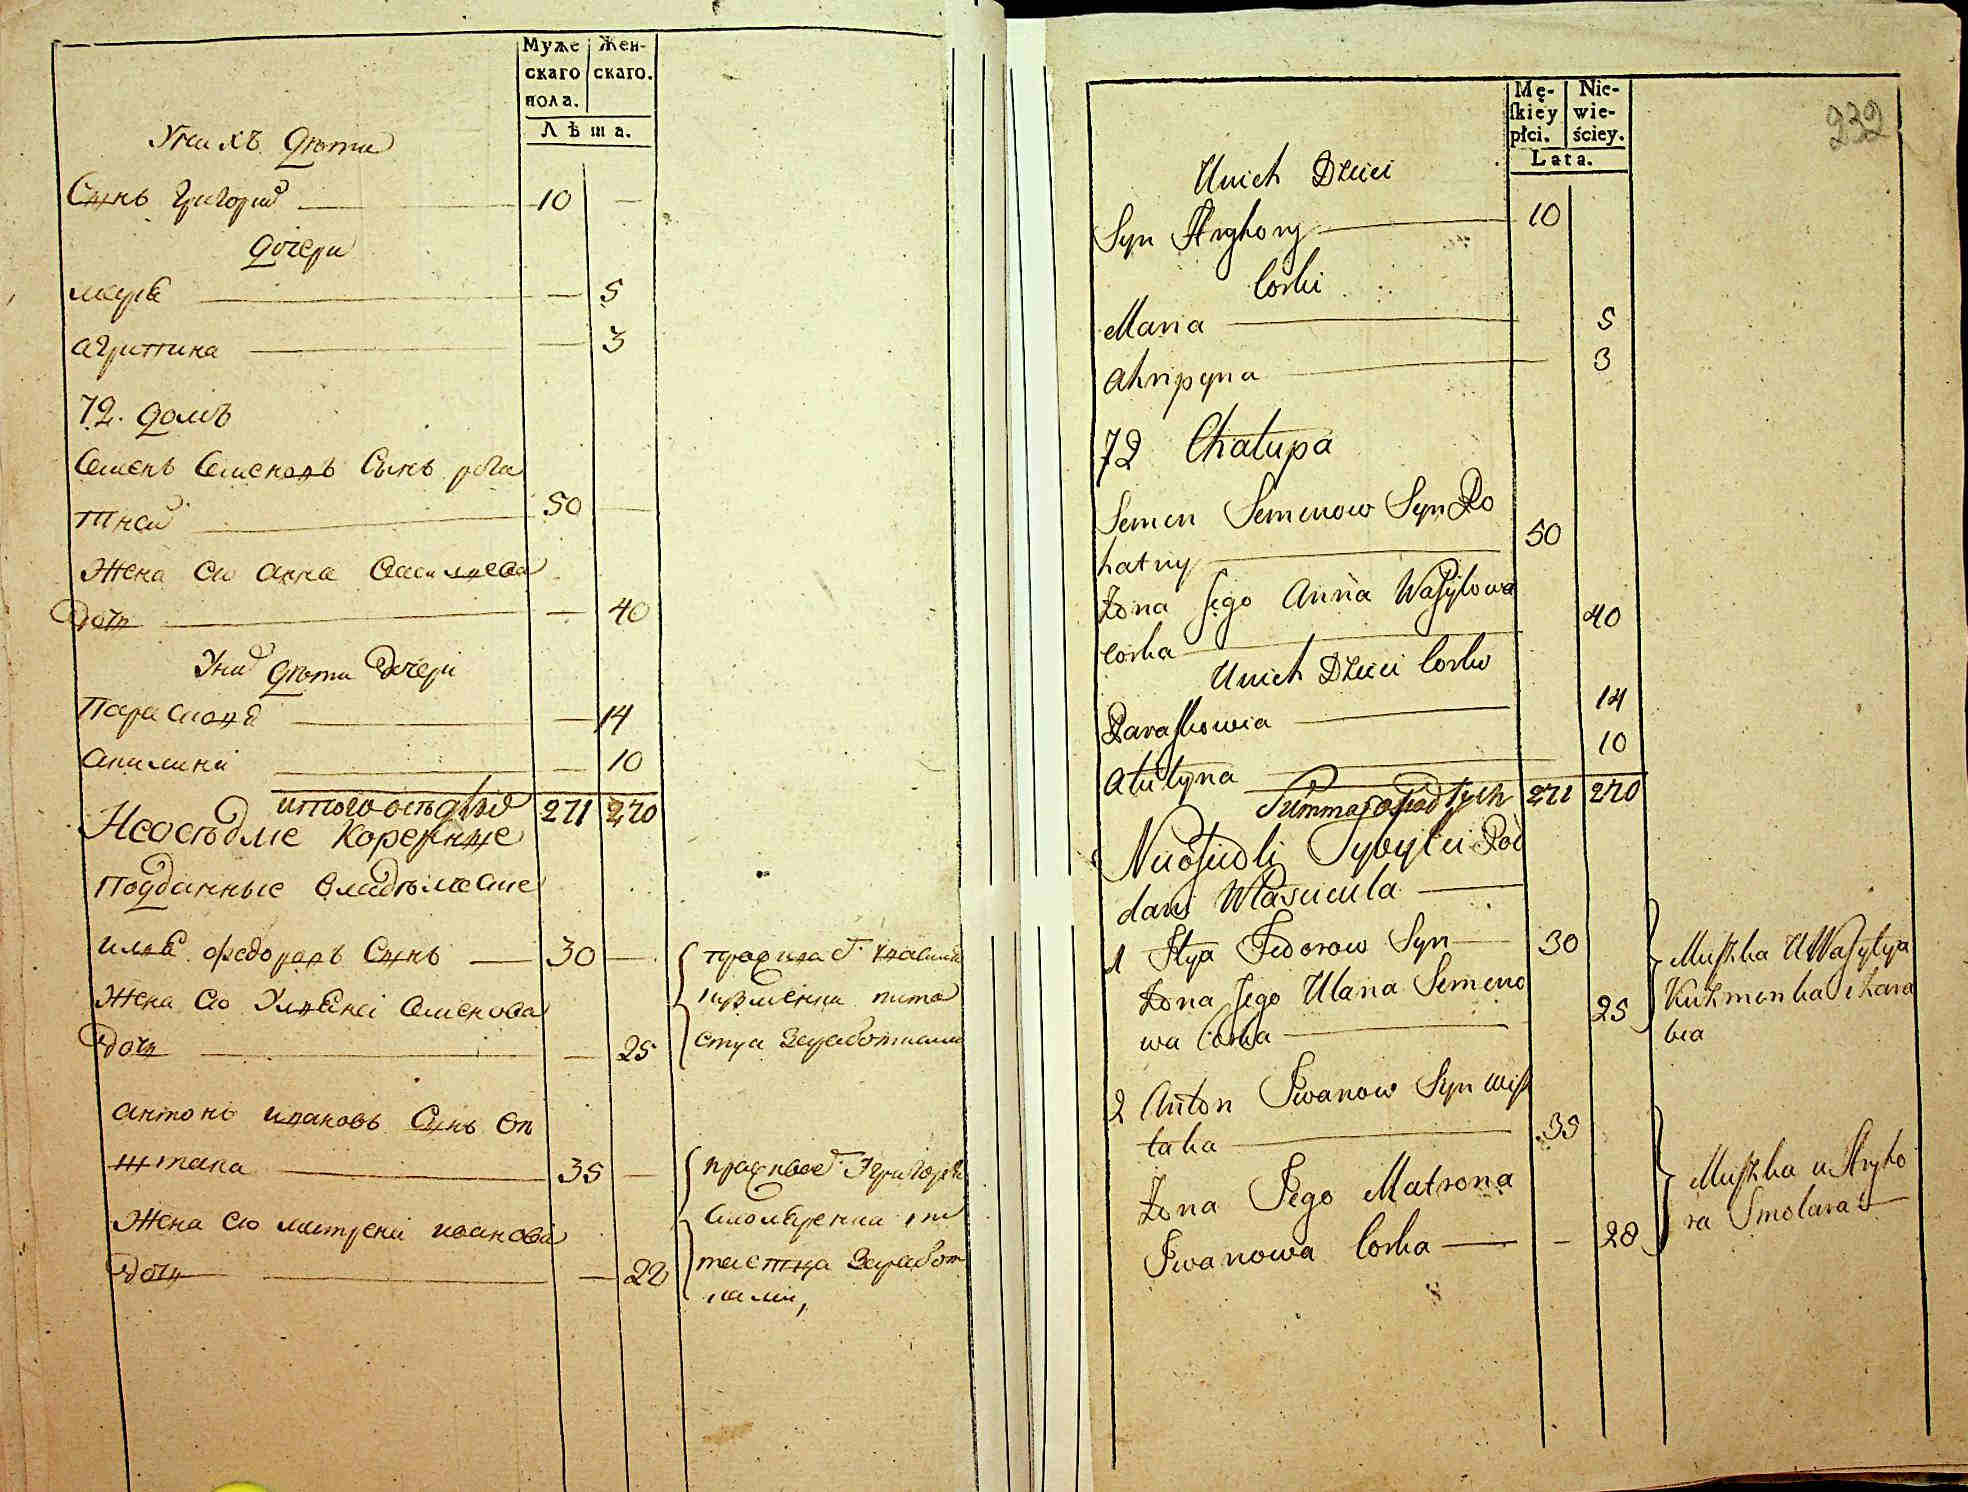 Муже
скаго
пола.
Жен-
скаго.
Лѣта.
У нихъ дѣти
Сынъ Григорій 10
дочери
марья 5
агрипина 3
72. домъ
Семенъ Семеновъ Сынъ рога
тной 50
Жена его анна Васильева
дочь 40
У них дѣти дочери
Парасковя 14
акилина 10
итого осѣдлых 271 270
Неосѣдлые Коренные
подданные владѣльские
илья федоровъ Сынъ 30
Жена его Ульяна Семенова
дочь 25
у Василия
кузменка пита
ется Заработками
антонъ ивановъ Сынъ Ви
штака 35
Жена его матрена иванова
дочь 28
у Григория
Смоляренка пи
тается Заработ
ками,
232
Mę-
skiey
płci.
Nie-
wie-
ściey.
Lata.
U nich Dzieci
Syn Hryhory 10
Corki
Maria 5
Ahripyna 3
72 Chałupa
Semen Semenow Syn Ro
hatny 50
Żona Jego Anna Wasylowa
Corka 40
U nich Dzieci Corki
Paraskowia 14
Akilyna 10
Summa osiadłych 271 270
Nieosiedli
dani Własciciela
1 Ilya Fedorow Syn 30
Żona Jego Ulana Semeno
wa Corka 25
Mieszka u Wasylya
Kuzmenka i Zara
bia
2 Anton Iwanow Syn Wisz
taka 35
Żona Jego Matrona
Iwanowa Corka 28
Mieszka u Hryho
ra Smolara